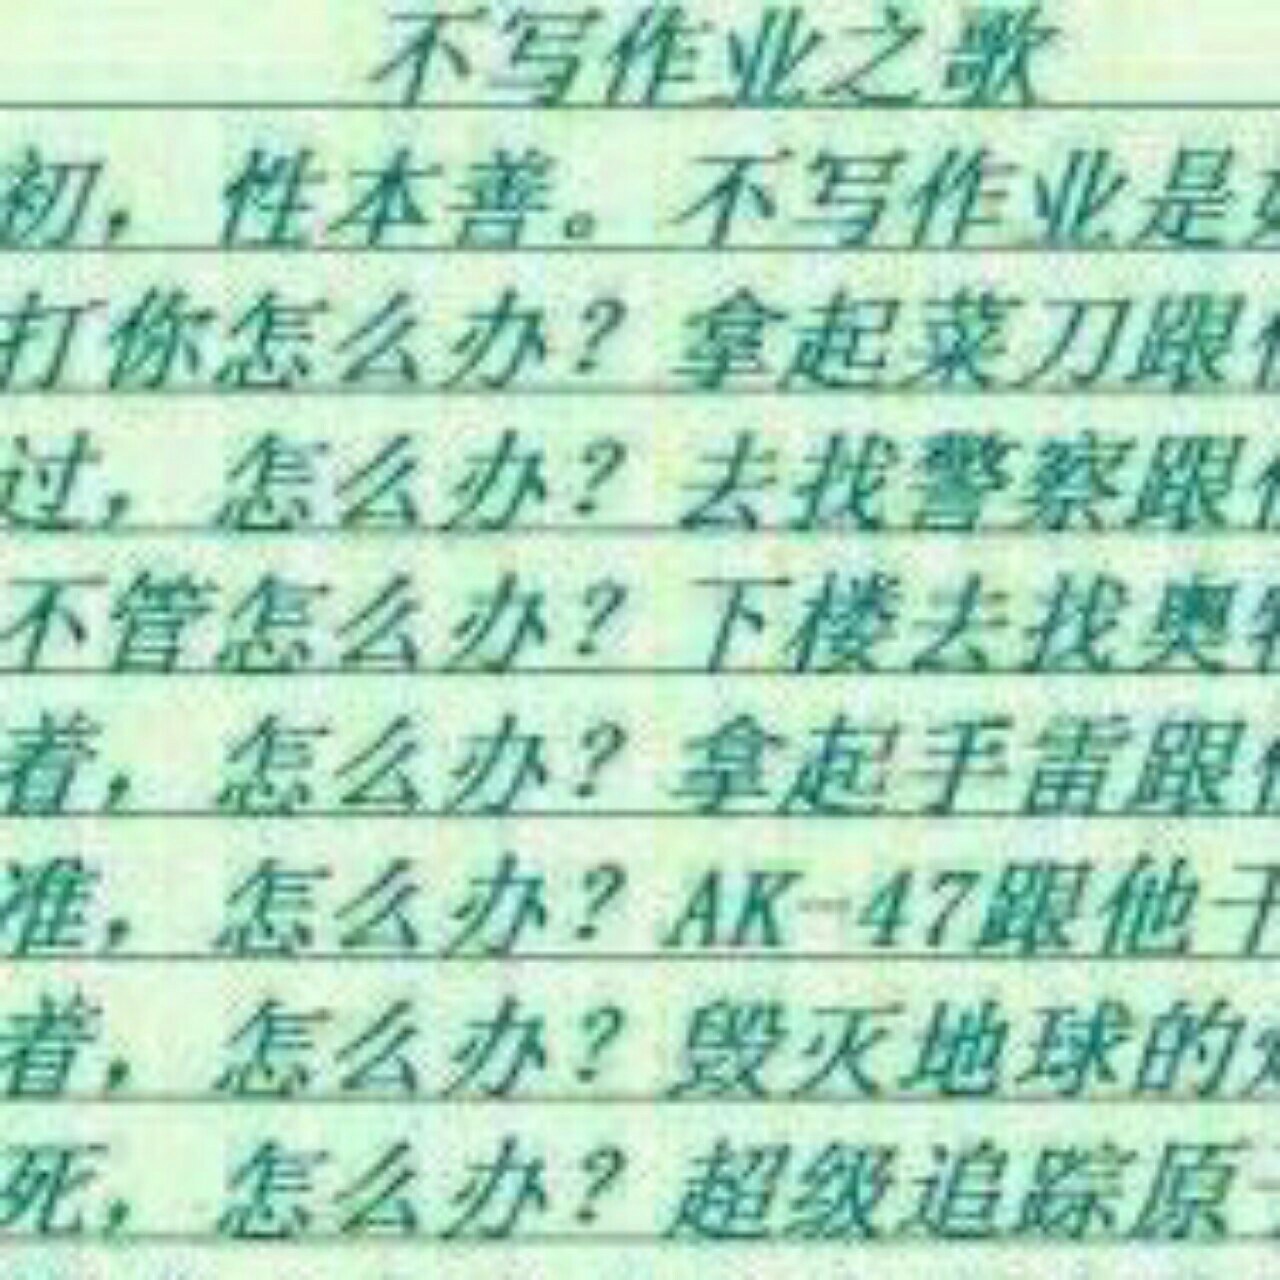 不写作业之歌
初，性本善。不写作业是
打你怎么办？拿起菜刀跟
过，怎么办？去找警察跟
不管怎么办？下楼去找奥
着，怎么办？拿起手雷跟
准，怎么办？AK-47跟他干
着，怎么办？毁灭地球的
死，怎么办？超级追踪原